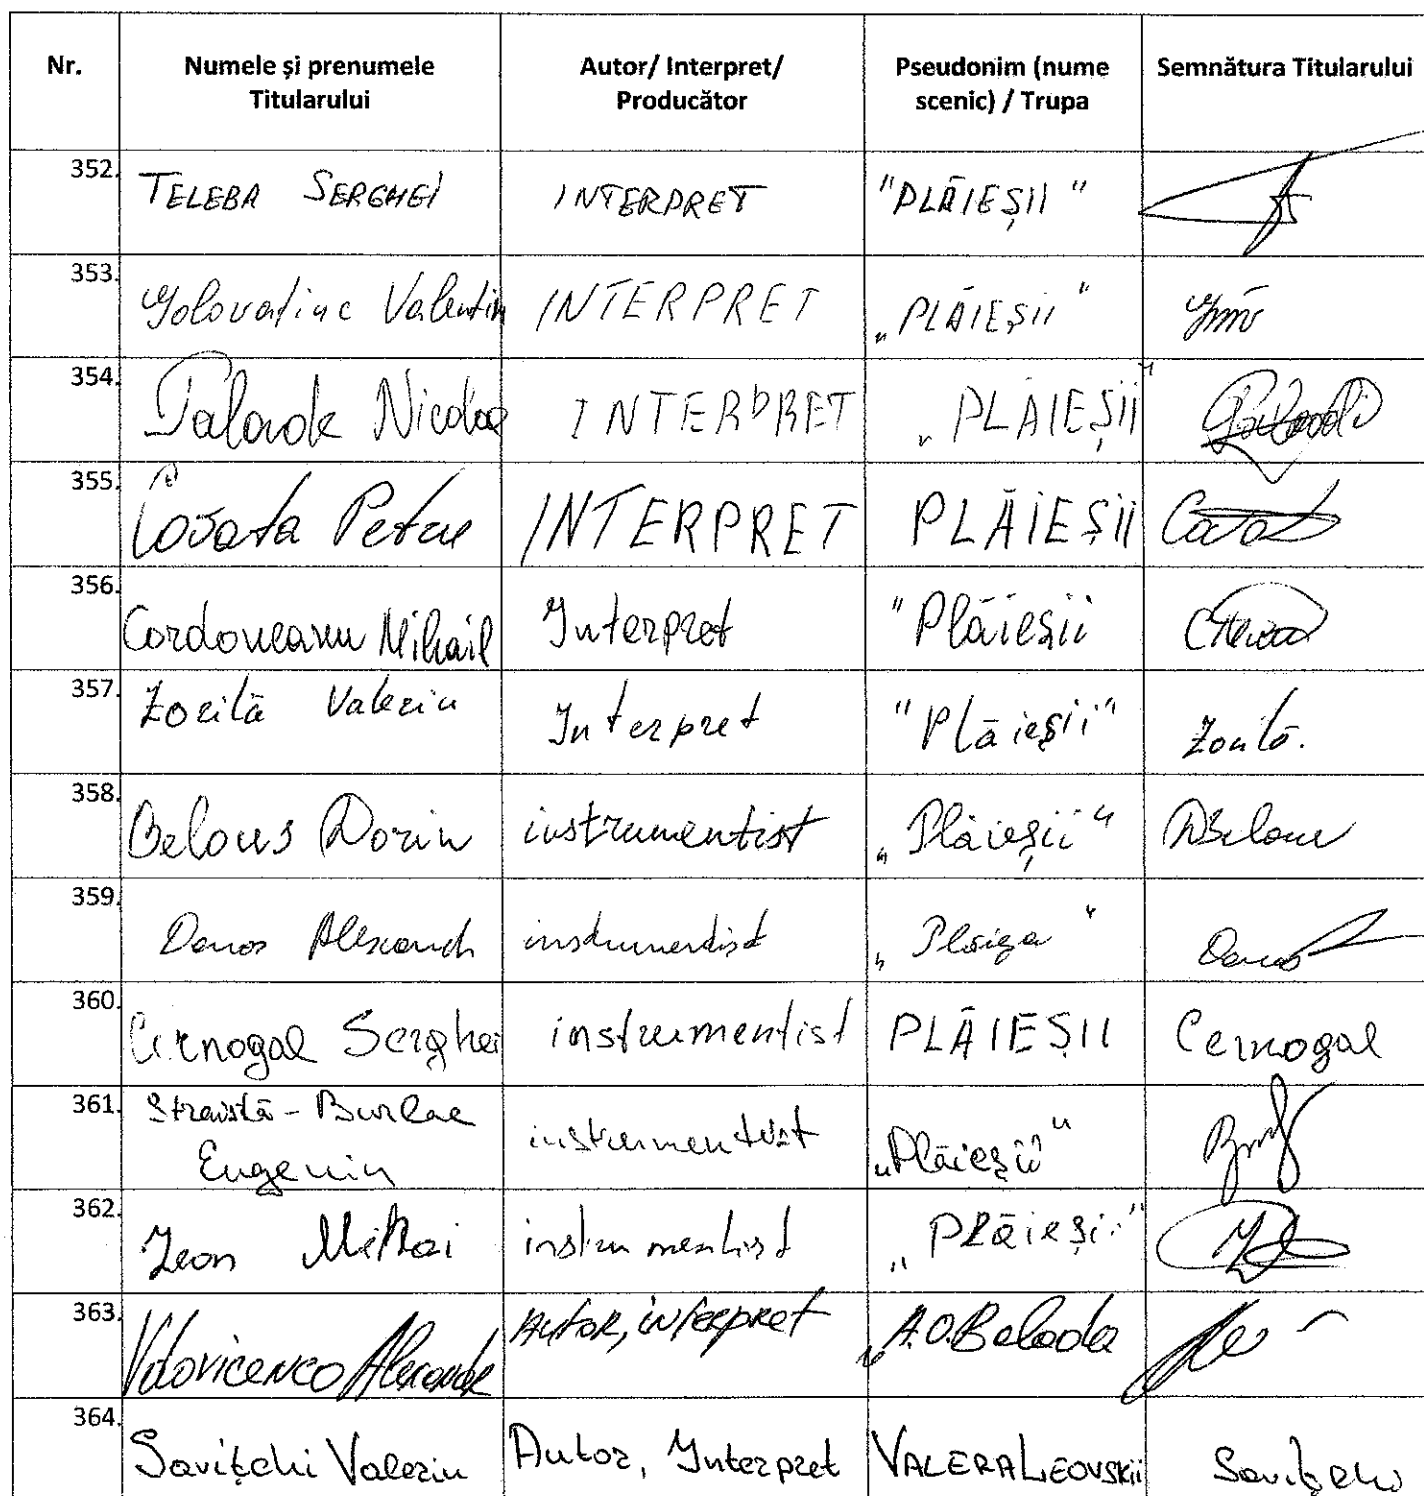 Nr. Numele și prenumele Titularului Autor/ Interpret/ Producător Pseudonim (nume scenic) / Trupa Semnătura Titularului
352. TELEBA SERGHEI INTERPRET "PLĂIEȘII"
353. Golovatiuc Valentin INTERPRET „PLĂIEȘII"
354. Nicolae INTERPRET „PLĂIEȘII"
355. Petru INTERPRET PLĂIEȘII
356. Cordoneanu Mihail Interpret "Plăieșii
357. Zorilă Valeriu Interpret "Plăieșii" Zorilă.
358. Belous Dorin instrumentist „Plăieșii" DBelous
359. instrumentist
360. Cernogal Serghei instrumentist PLĂIEȘII Cernogal
361. Straistă - Burlac
Eugeniu instrumentist „Plăieșii"
362. instrumentist „Plăieșii"
363. Autor, interpret „A.O.Balada
364. Savițchi Valeriu Autor, Interpret VALERALEOVSKII Savițchi